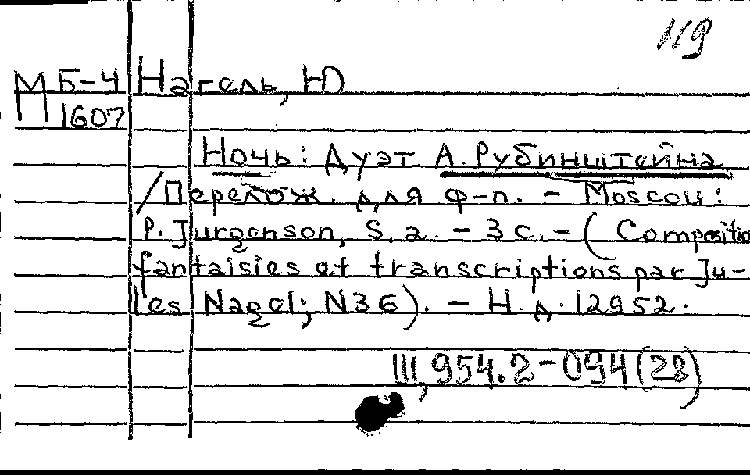 119
МБ-4 Нагель, Ю
П 1607
Ночь: Дуэт А. Рубинштейна
/Перелож. для ф-п. - Moscou:
P. Jurgenson, S.a. - 3 с. - (Compositio
fantaisies et transcriptions par Ju-
les Nagel; N36). - Н.д. 12952.
III, 954.2-094(28)